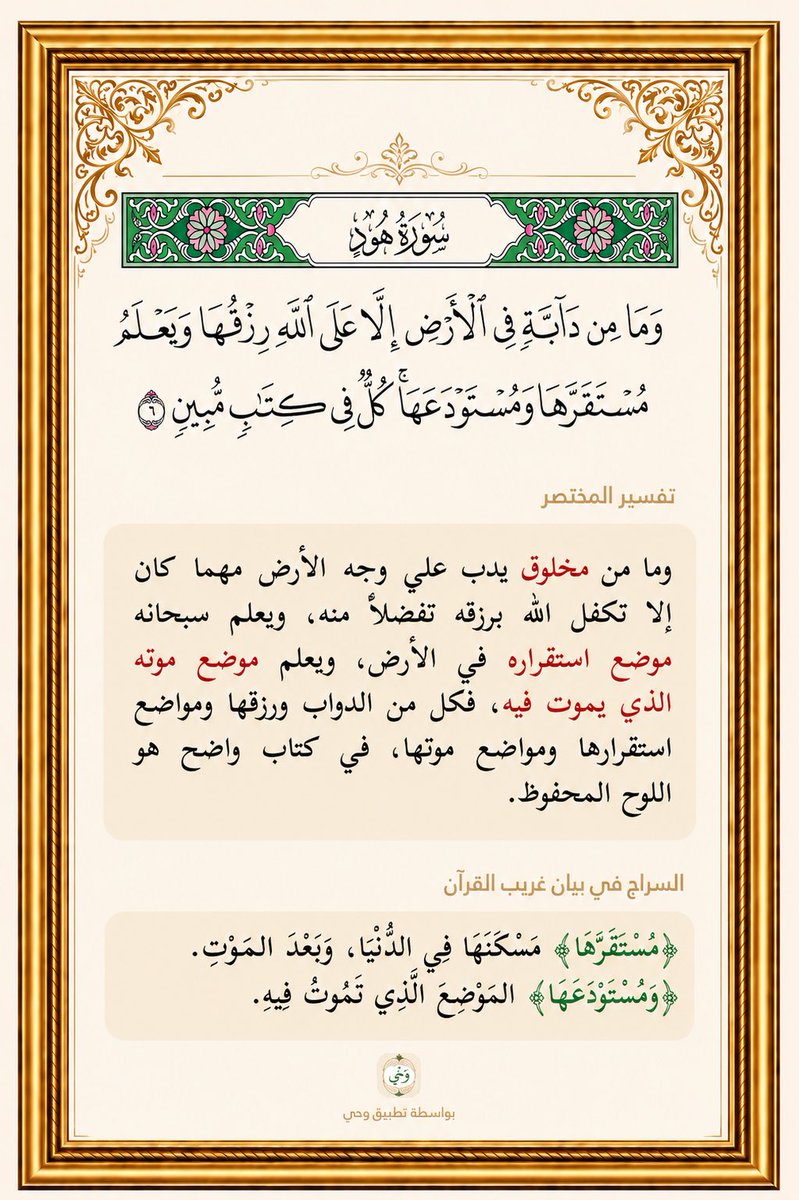 سُورَةُ هُودٍ
وَمَا مِن دَآبَّةٖ فِي ٱلۡأَرۡضِ إِلَّا عَلَى ٱللَّهِ رِزۡقُهَا وَيَعۡلَمُ
مُسۡتَقَرَّهَا وَمُسۡتَوۡدَعَهَاۚ كُلّٞ فِي كِتَٰبٖ مُّبِينٖ ٦
تفسير المختصر
وما من مخلوق يدب علي وجه الأرض مهما كان
إلا تكفل الله برزقه تفضلاً منه، ويعلم سبحانه
موضع استقراره في الأرض، ويعلم موضع موته
الذي يموت فيه، فكل من الدواب ورزقها ومواضع
استقرارها ومواضع موتها، في كتاب واضح هو
اللوح المحفوظ.
السراج في بيان غريب القرآن
﴿مُسْتَقَرَّهَا﴾ مَسْكَنَهَا فِي الدُّنْيَا، وَبَعْدَ المَوْتِ.
﴿وَمُسْتَوْدَعَهَا﴾ المَوْضِعَ الَّذِي تَمُوتُ فِيهِ.
وَحْي
بواسطة تطبيق وحي